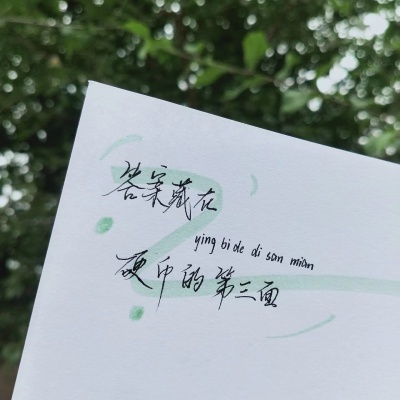 答案藏在
ying bi de di san mian
硬币的第三面